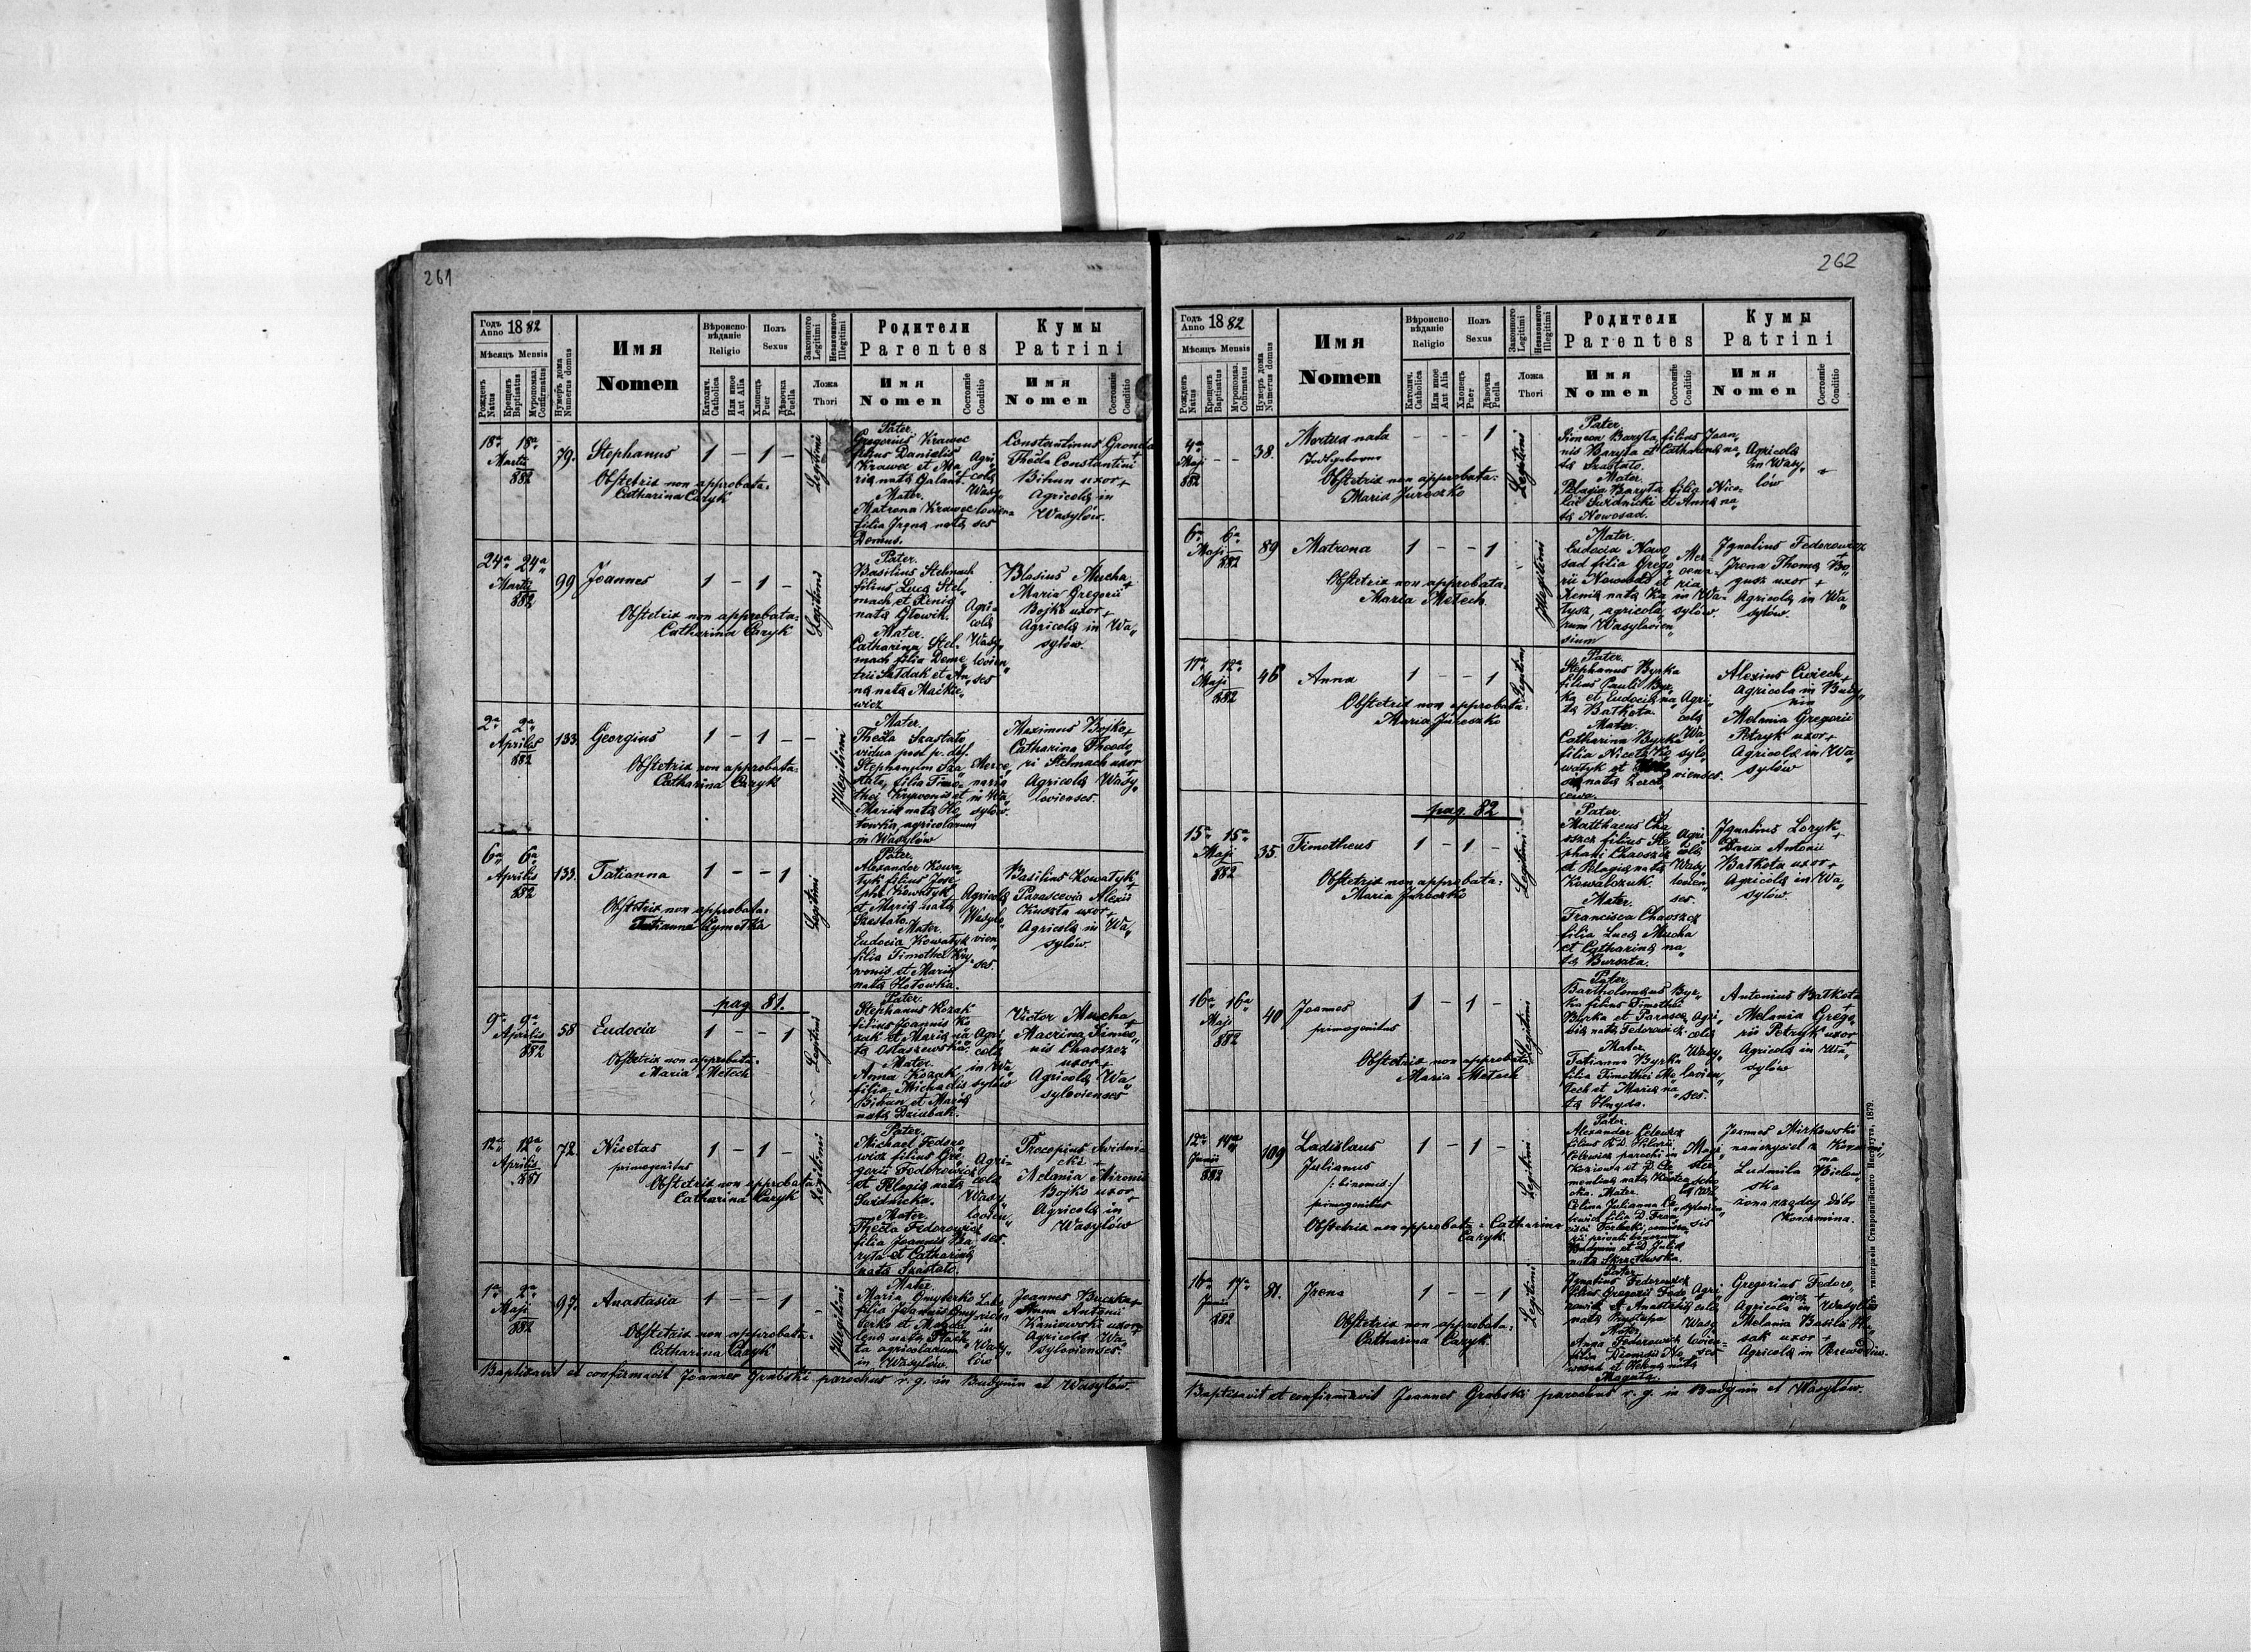 261
Годъ Anno 1882
Мѣсяцъ Mensis
Рожденъ Natus
Крещенъ Baptisatus
Мѵропомаз. Cofirmatus
Нумеръ дома Numerus domus
Имя
Nomen
Вѣроиспо-
вѣданіе
Religio
Католич. Catholica
Или иное Aut Alia
Полъ
Sexus
Хлопецъ Puer
Дѣвочка Puella
Законного Legitimi
Незаконного Illegitimi
Ложа
Thori
Родители
Parentes
Имя
Nomen
Состояніе Conditio
Кумы
Patrini
Имя
Nomen
Состояніе Conditio
18ª 18ª
Martii
882
79.
Stephanus
1 – 1 –
Obstetrix non approbata:
Catharina Caryk
Legitimi
Pater.
Gregorius Krawec
filius Danielis
Krawec et Ma„
ria nata Galant.
Mater.
Matrona Krawec
filia Jagna nata
Demus.
Agri„
cola
Wasy„
lovien„
ses
Constantinus Gronda
+
Thecla Constantini
Bihun uxor +
Agricola in
Wasylów.
24ª 24ª
Martii
882
99
Joannes
1 – 1 –
Obstetrix non approbata:
Catharina Caryk
Legitimi
Pater.
Basilius Stelmach
filius Luca Stel„
mach et Xenia
nata Głowik.
Mater.
Catharina Stel„
mach filia Deme„
trii Sałdak et An„
na nata Maikie„
wicz
Agri„
cola
Wasy„
lovien„
ses
Blasius Mucha +
Maria Gregorii
Bojko uxor +
Agricola in Wa„
sylów.
2ª 2ª
Aprilis
882
133.
Georgius
1 – 1 –
Obstetrix non approbata:
Catharina Caryk
Illegitimi
Mater.
Thecla Szastało
vidua post p. def.
Stephanum Sza„
stało, filia Timo„
thei Krywonis et
Maria nata Ho„
towka, agricolarum
in Wasylów
Merce„
naria
in Wa„
sylów.
Maximus Bojko +
Catharina Theodo„
ri Stelmach uxor
Agricola Wasy„
lovienses.
6ª 6ª
Aprilis
882
133.
Tatianna
1 – – 1
Obstetrix non approbata:
Tatianna Cymetka
Legitimi
Pater.
Alexander Kowa„
tyk filius Jose„
phi Kowatyk
et Maria nata
Szastało.
Mater.
Eudocia Kowatyk
filia Timothei Kry„
wonis et Maria
nata Hotowka.
Agricola
Wasylo„
vien„
ses.
Basilius Kowatyk
+
Parascevia Alexii
Kuszta uxor +
Agricola in Wa„
sylów.
pag. 81.
9ª 9ª
Aprilis
882
58
Eudocia
1 – – 1
Obstetrix non approbata:
Maria Metech
Legitimi
Pater.
Stephanus Kozak
filius Joannis Ko„
zak et Maria na„
ta Ostaszewska.
Mater.
Anna Kozak
filia Michaelis
Bihun et Maria
nata Dziubak.
Agri„
cola
in Wa„
sylów
Victor Mucha +
Macrina Simeo„
nis Chaoszcz
uxor +
Agricola Wa„
sylovienses
12ª 12ª
Aprilis
881
72.
Nicetas
primogenitus
1 – 1 –
Obstetrix non approbata:
Catharina Caryk
Legitimi
Pater.
Michael Fedoro„
wicz filius Gre„
gorii Fedorowicz
et Pelagia nata
Swidnicka.
Mater.
Thecla Fedorowicz
filia Joannis Ba„
ryta et Catharina
nata Szastato.
Agri„
cola
Wasy„
lovien„
ses.
Procopius Swidnic„
cki +
Melania Mironis
Bojko uxor +
Agricola in
Wasylów
1ª 2ª
Maji
882
97.
Anastasia
1 – – 1
Obstetrix non approbata:
Catharina Caryk
Illegitimi
Mater.
Maria Gmyterko
filia Joannis Gmy„
terko et Magda
lena nata Płach„
ta agricolarum
in Wasylów.
in
Wasy„
lów
Joannes Buczka +
Anna Antonii
Kaniowski uxor +
Agricola Wa„
sylovienses.
Baptisavit et confirmavit Joannes Grabski parochus r. g. in Budynin et Wasylów.
262
Годъ Anno 1882
Мѣсяцъ Mensis
Рожденъ Natus
Крещенъ Baptisatus
Мѵропомаз. Cofirmatus
Нумеръ дома Numerus domus
Имя
Nomen
Вѣроиспо-
вѣданіе
Religio
Католич. Catholica
Или иное Aut Alia
Полъ
Sexus
Хлопецъ Puer
Дѣвочка Puella
Законного Legitimi
Незаконного Illegitimi
Ложа
Thori
Родители
Parentes
Имя
Nomen
Состояніе Conditio
Кумы
Patrini
Имя
Nomen
Состояніе Conditio
4ª
Maji – –
882
38.
Mortua nata
Todtgeborne
– – – 1
Obstetrix non approbata:
Maria Jureczko
Legitimi
Pater.
Simeon Baryta filius Joan„
nis Baryta et Catharina na„
ta Szastato.
Mater.
Pelagia Baryta filia Nico„
lai Swidnicki et Anna na„
ta Nowosad.
Agricola
in Wasy„
lów
+
6ª 6ª
Maji
882
89
Matrona
1 – – 1
Obstetrix non approbata:
Maria Metech.
Illegitimi
Mater.
Eudocia Nowo„
sad filia Grego„
rii Nowosad et
Xenia nata Ka„
tysz, agricola„
rum Wasylovien„
sium
Mer„
cena„
ria
in Wa„
sylów.
Ignatius Fedorowicz
+
Irena Thoma Bo„
gusz uxor +
Agricola in Wa„
sylów.
11ª 12ª
Maji
882
46
Anna
1 – – 1
Obstetrix non approbata:
Maria Jureczko
Legitimi
Pater.
Stephanus Byrka
filius Pauli Byr„
ka et Eudocia na„
ta Batkota.
Mater.
Catharina Byrka
filia Niceta Ko„
watyk et
nata Lore„
cowa.
Agri„
cola
Wa„
sylo„
vienses.
Alexius Cwiech +
Agricola in Budy„
nin
Melania Gregorii
Petryk uxor +
Agricola in Wa„
sylów
pag. 82
15ª 15ª
Maji
882
35.
Timotheus
1 – 1 –
Obstetrix non approbata:
Maria Jureczko
Legitimi
Pater.
Matthaeus Cha„
oszcz filius Ste„
phani Chaoszcz
et Pelagia nata
Kowalczuk.
Mater.
Francisca Chaoszcz
filia Luca Mucha
et Catharina na„
ta Burszta.
Agri„
cola
Wasy„
lovien„
ses.
Ignatius Loryk +
Daria Antonii
Batkota uxor +
Agricola in Wa„
sylów.
16ª 16ª
Maji
882
40
Joannes
primogenitus
1 – 1 –
Obstetrix non approbata:
Maria Metech
Legitimi
Pater.
Bartholomaus Byr„
ka filius Timothei
Byrka et Parasce„
via nata Fedorowicz.
Mater.
Tatianna Byrka
filia Timothei Me„
tech et Maria na„
ta Hnyda.
Agri„
cola
Wasy„
lovien„
ses.
Antonius Batkota
+
Melania Grego„
rii Petryk uxor
+
Agricola in Wa„
sylów
12ª 14ª
Junii
882
109
Ladislaus
Julianus
/:binomis:/
primogenitus
1 – 1 –
Obstetrix non approbata: Catharina
Caryk.
Legitimi
Pater.
Alexander Celewicz
filius R. D. Hilarii
Celewicz parochi in
Koziowa et D. Cle„
mentina nata
Mater.
Celina Julianna Ce„
lewicz filia D. Fran„
cisci
Budynin et D. Julia
nata
Joannes Mirkowski
nauczyciel z
Ludmila Bielaw„
ska
żona rządcy dóbr
Korczmina.
16ª 17ª
Junii
882
81.
Irena
1 – – 1
Obstetrix non approbata:
Catharina Caryk.
Legitimi
Pater.
Ignatius Fedorowicz
filius Gregorii Fedo„
rowicz et Anastasia
nata Prystupa
Mater.
Anna Fedorowicz
filia Dionisii No„
wosad et Helena nata
Maguta.
Agri„
cola
Wasy„
lovien„
ses
Gregorius Fedoro„
wicz +
Agricola in Wasylów
Melania Basilii
uxor +
Agricola in Perewodów.
Baptisavit et confirmavit Joannes Grabski parochus r. g. in Budynin et Wasylów.
типографія Ставропигійского Института, 1879.